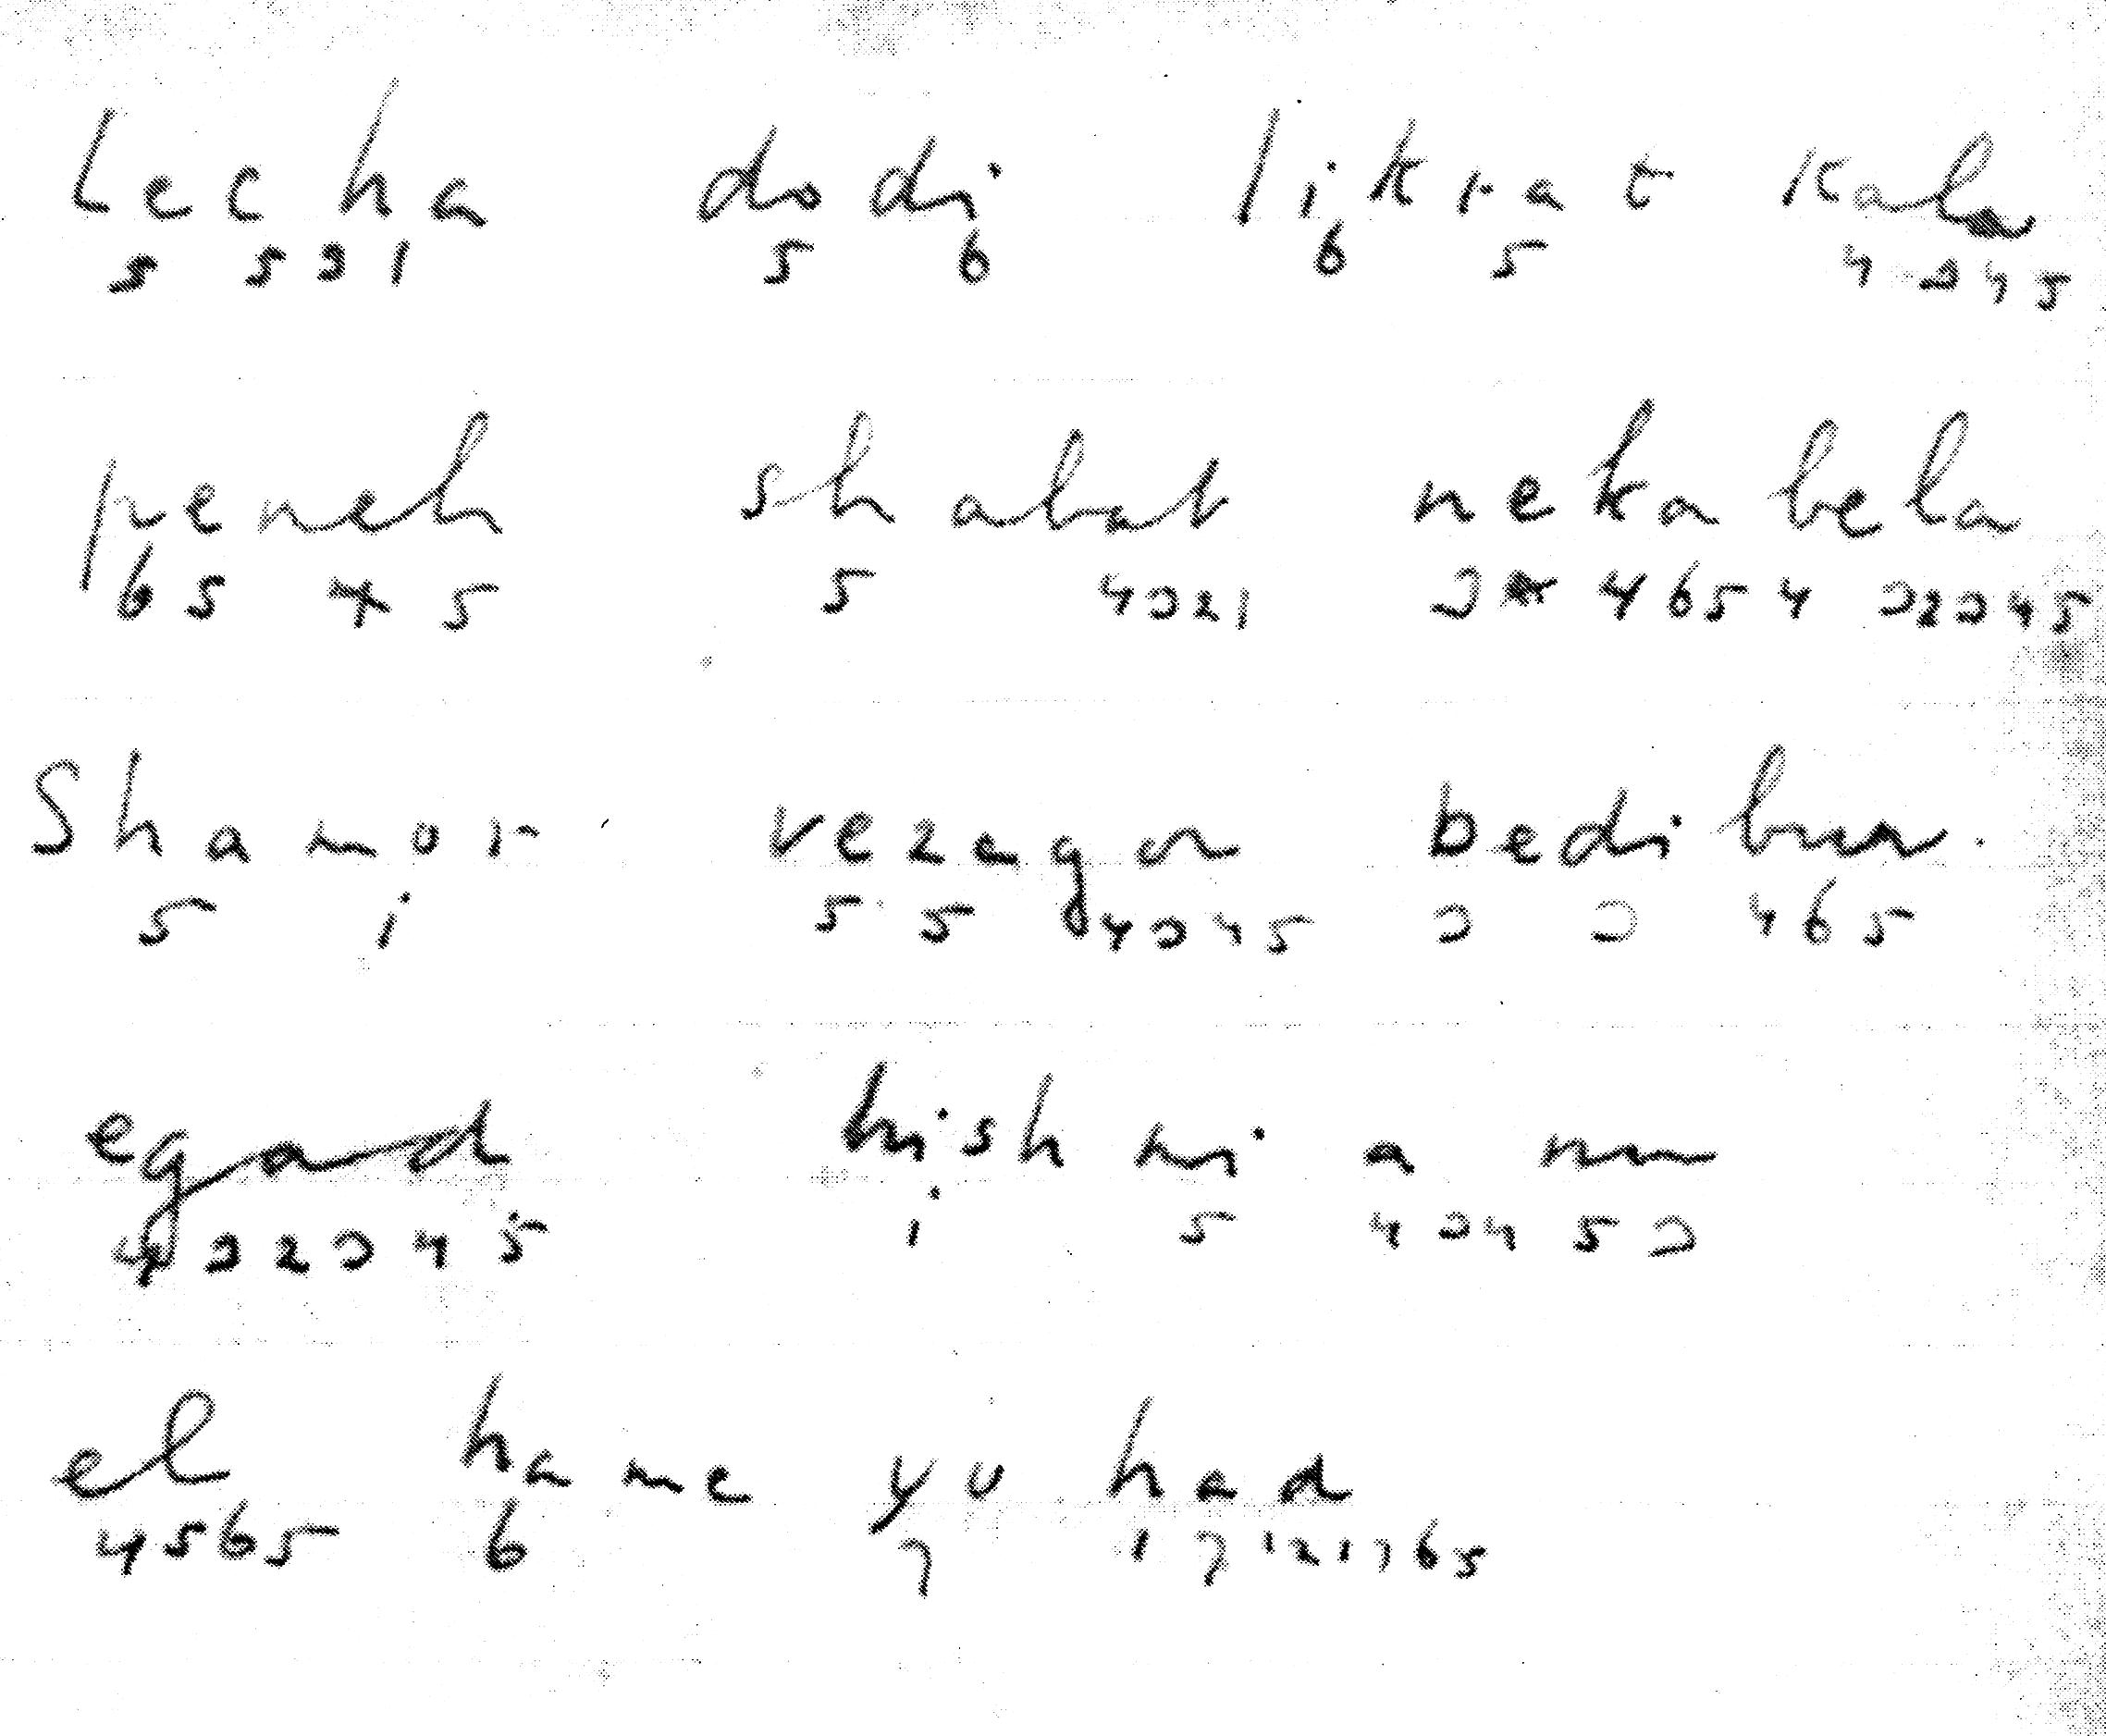 Lecha dodi likrat Kala
5 5 3 1 5 6 6 5 4 3 4 5
peneh shabat nekabela
6 5 4 5 5 4 3 2 1 3 4 6 5 4 3 2 3 4 5
Shamor vezagor bedibur.
5 i 5 5 4 3 4 5 3 3 4 6 5
egad hishmi a nu
4 3 2 3 4 5 i 5 4 3 4 5 3
el hame yu had
4 5 6 5 6 7 1 7 1 2 1 7 6 5